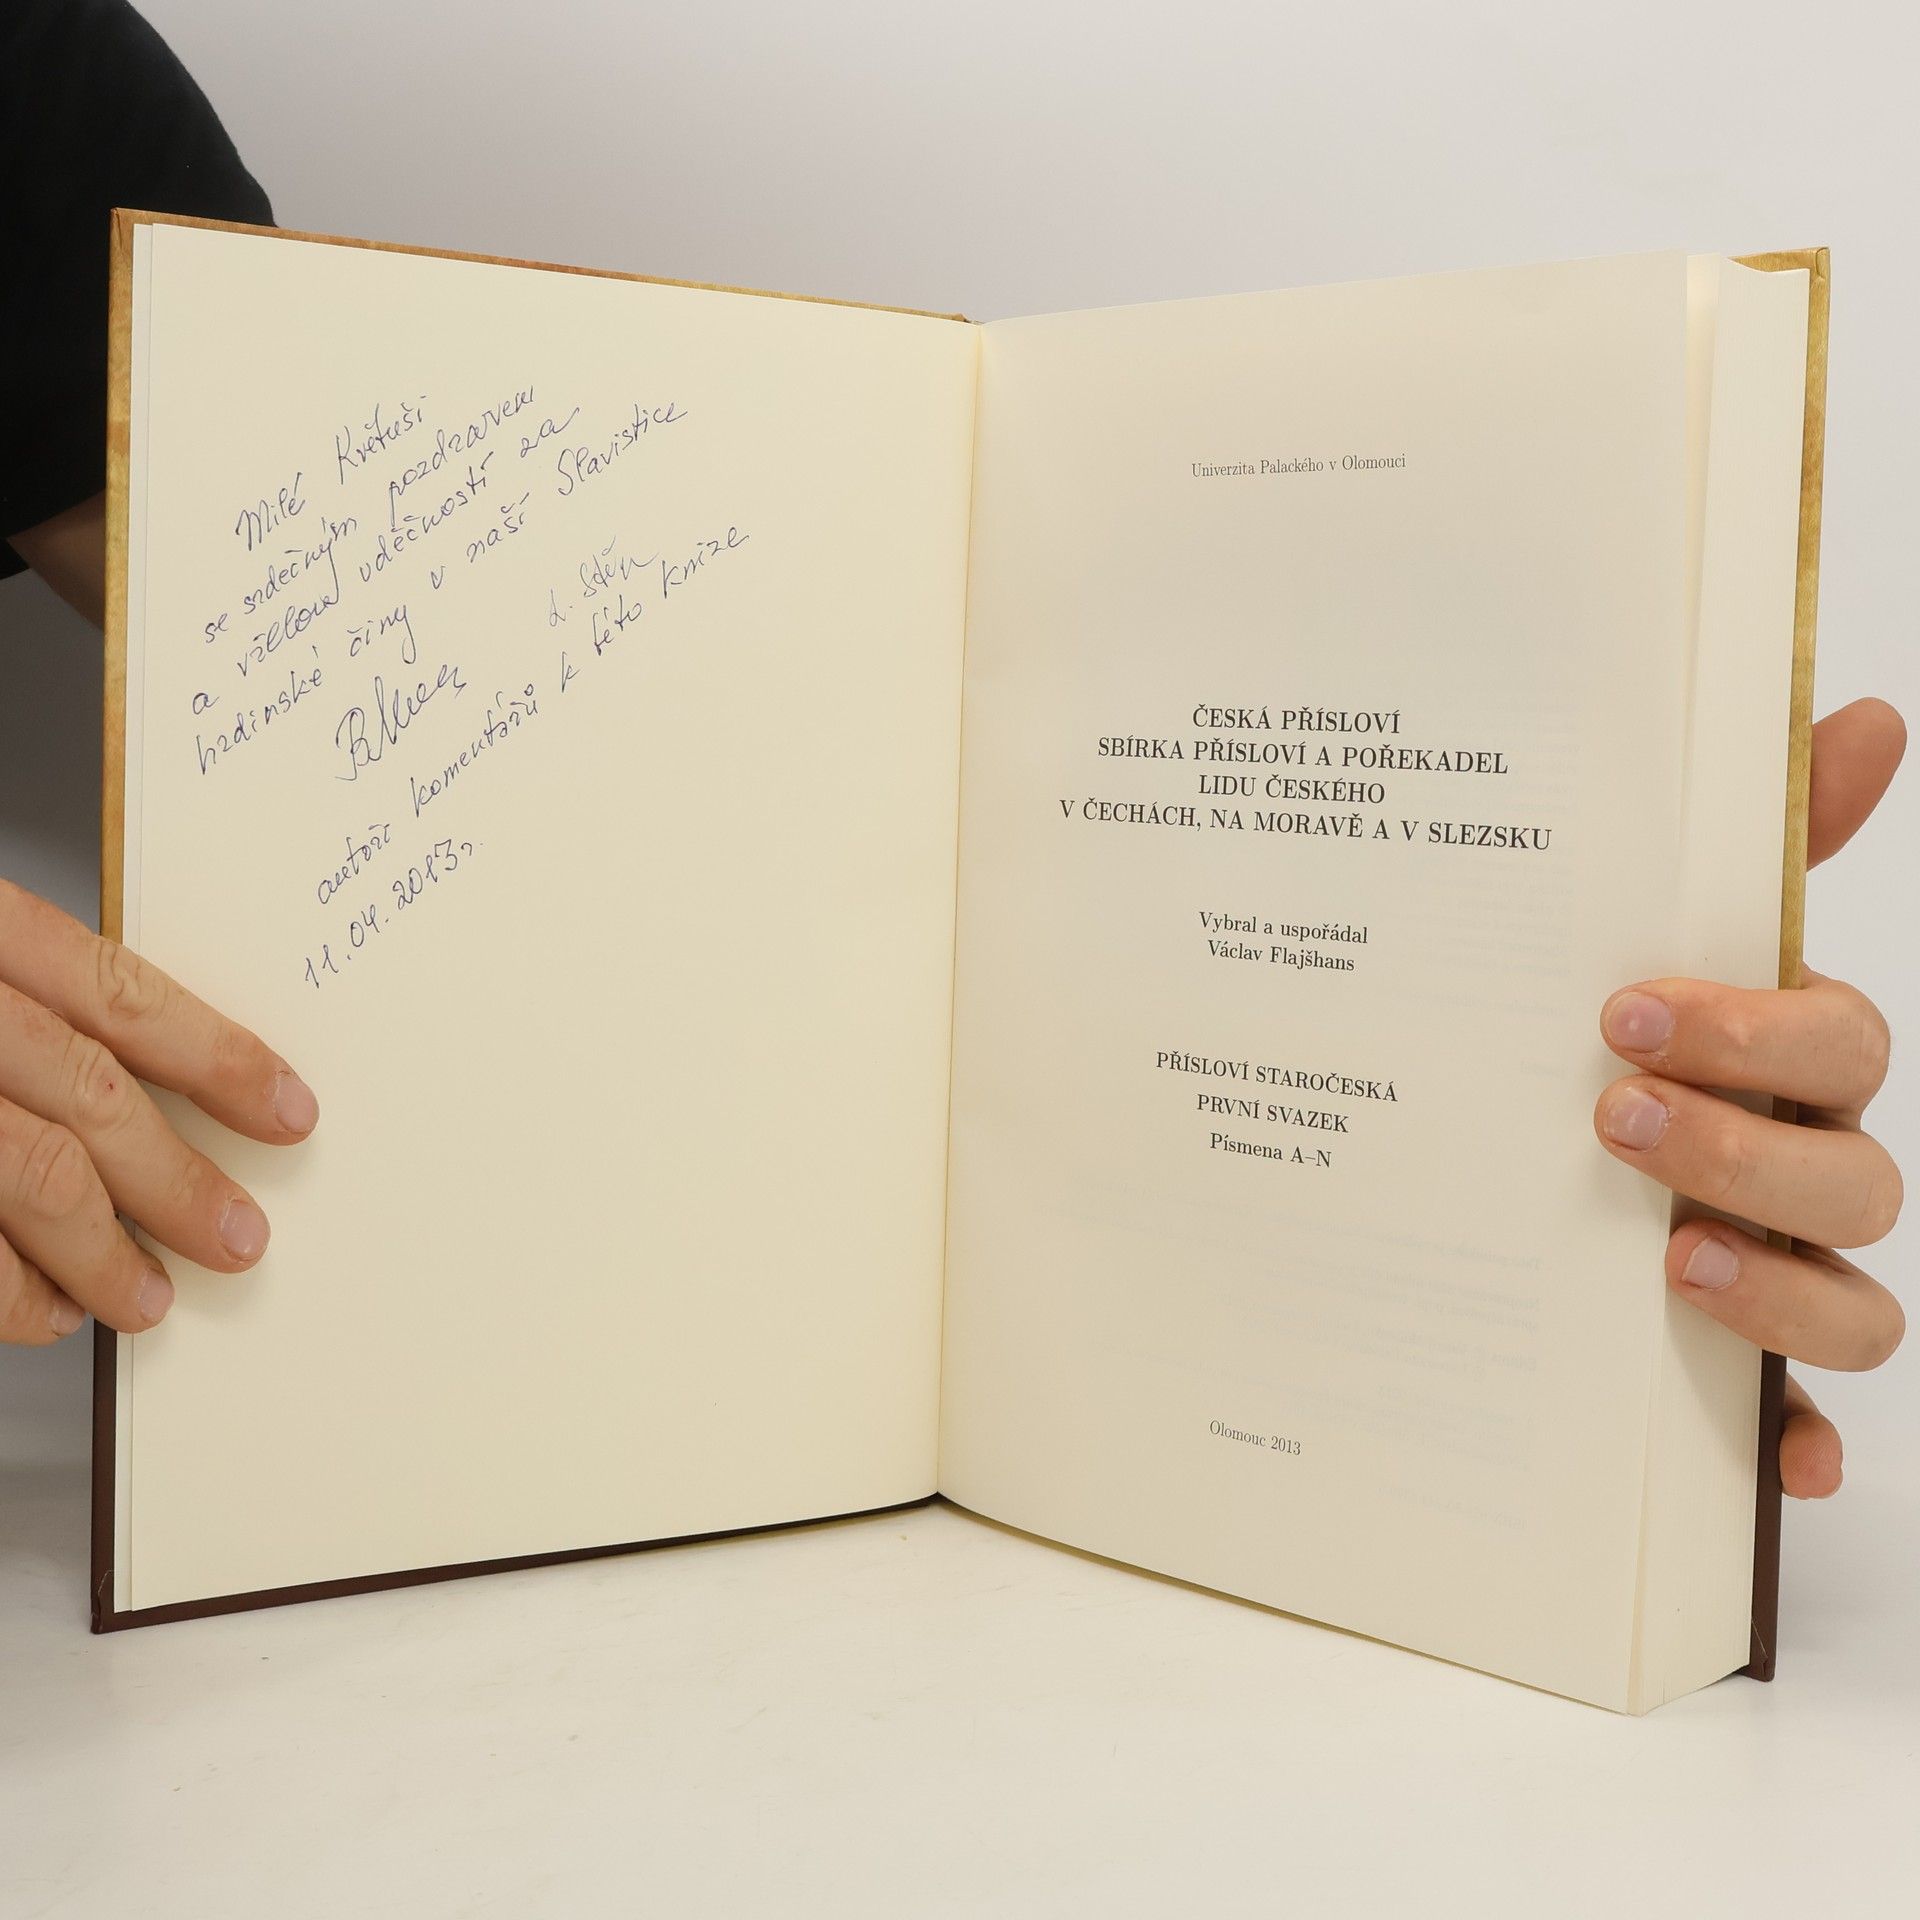 Milé Květuši
se srdečným pozdravem
a vřelou vděčností za
hrdinské činy v naší Slavistice
L. Stěp
autoři komentářů k této knize
11.04.2013 r.
Univerzita Palackého v Olomouci
ČESKÁ PŘÍSLOVÍ
SBÍRKA PŘÍSLOVÍ A POŘEKADEL
LIDU ČESKÉHO
V ČECHÁCH, NA MORAVĚ A V SLEZSKU
Vybral a uspořádal
Václav Flajšhans
PŘÍSLOVÍ STAROČESKÁ
PRVNÍ SVAZEK
Písmena A–N
Olomouc 2013